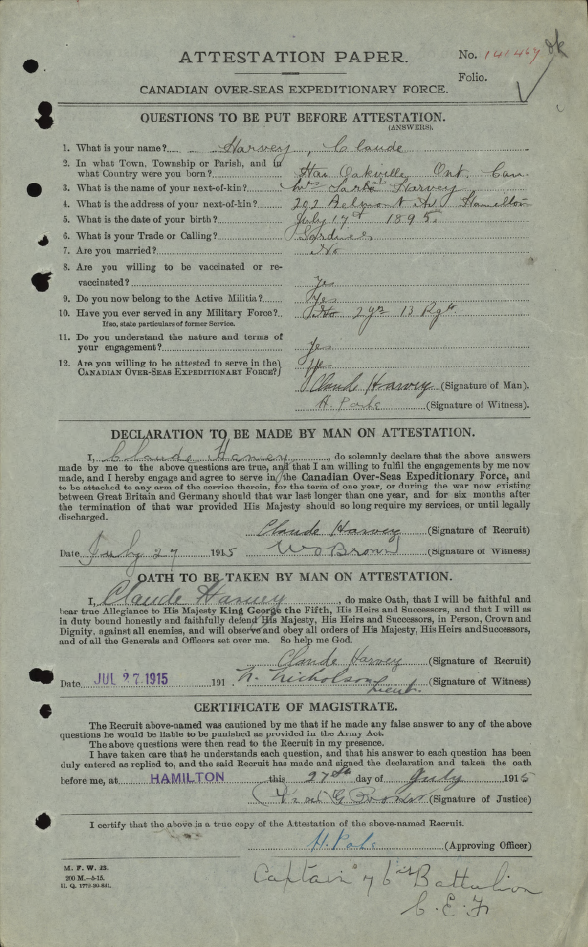 ATTESTATION PAPER.
No. 141467
Folio.
CANADIAN OVER-SEAS EXPEDITIONARY FORCE.
QUESTIONS TO BE PUT BEFORE ATTESTATION.
(ANSWERS).
1. What is your name? Harvey, Claude
2. In what Town, Township or Parish, and in
what Country were you born? Oakville Ont. Can.
3. What is the name of your next-of-kin? Harvey
4. What is the address of your next-of-kin? 202 Belmont Av. Hamilton
5. What is the date of your birth? July 17th 1895.
6. What is your Trade or Calling?
7. Are you married? No
8. Are you willing to be vaccinated or re-
vaccinated? Yes
9. Do you now belong to the Active Militia? Yes
10. Have you ever served in any Military Force? 2 yrs 13 Rgt.
If so, state particulars of former Service.
11. Do you understand the nature and terms of
your engagement? Yes
12. Are you willing to be attested to serve in the
CANADIAN OVER-SEAS EXPEDITIONARY FORCE? Yes
Claude Harvey (Signature of Man).
(Signature of Witness).
DECLARATION TO BE MADE BY MAN ON ATTESTATION.
I, Claude Harvey, do solemnly declare that the above answers
made by me to the above questions are true, and that I am willing to fulfil the engagements by me now
made, and I hereby engage and agree to serve in the Canadian Over-Seas Expeditionary Force, and
to be attached to any arm of the service therein, for the term of one year, or during the war now existing
between Great Britain and Germany should that war last longer than one year, and for six months after
the termination of that war provided His Majesty should so long require my services, or until legally
discharged.
Claude Harvey (Signature of Recruit)
Date July 27 1915 W Brown (Signature of Witness)
OATH TO BE TAKEN BY MAN ON ATTESTATION.
I, Claude Harvey, do make Oath, that I will be faithful and
bear true Allegiance to His Majesty King George the Fifth, His Heirs and Successors, and that I will as
in duty bound honestly and faithfully defend His Majesty, His Heirs and Successors, in Person, Crown and
Dignity, against all enemies, and will observe and obey all orders of His Majesty, His Heirs and Successors,
and of all the Generals and Officers set over me. So help me God.
Claude Harvey (Signature of Recruit)
Date JUL 27 1915 191 . Nicholson Lieut. (Signature of Witness)
CERTIFICATE OF MAGISTRATE.
The Recruit above-named was cautioned by me that if he made any false answer to any of the above
questions he would be liable to be punished as provided in the Army Act.
The above questions were then read to the Recruit in my presence.
I have taken care that he understands each question, and that his answer to each question has been
duly entered as replied to, and the said Recruit has made and signed the declaration and taken the oath
before me, at HAMILTON this 27th day of July 1915
(Signature of Justice)
I certify that the above is a true copy of the Attestation of the above-named Recruit.
(Approving Officer)
M. F. W. 23.
200 M.-5-15.
H. Q. 1772-39-831.
Captain 76th Battalion
C. E. F.